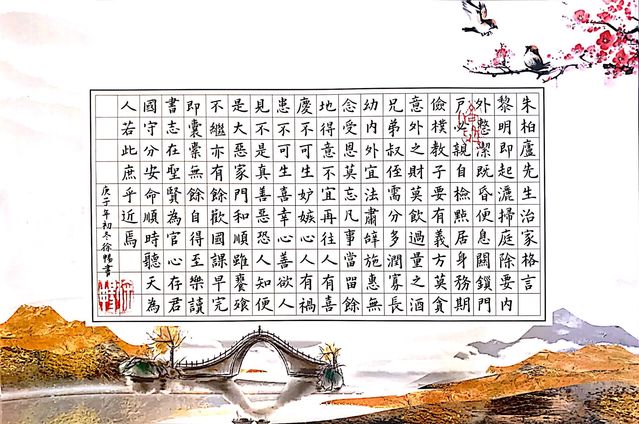 朱柏廬先生治家格言
黎明即起灑掃庭除要內
外整潔既昏便息關鎖門
戶必親自檢點居身務期
儉樸教子要有義方莫貪
意外之財莫飲過量之酒
兄弟叔侄需分多潤寡長
幼內外宜法肅辭施惠無
念受恩莫忘凡事當留餘
地得意不宜再往人有喜
慶不可生妒嫉心人有禍
患不可生喜幸心善欲人
見不是真善惡恐人知便
是大惡家門和順雖饔飧
不繼亦有餘歡國課早完
即囊橐無餘自得至樂讀
書志在聖賢為官心存君
國守分安命順時聽天為
人若此庶乎近焉
庚子年初冬徐暢書